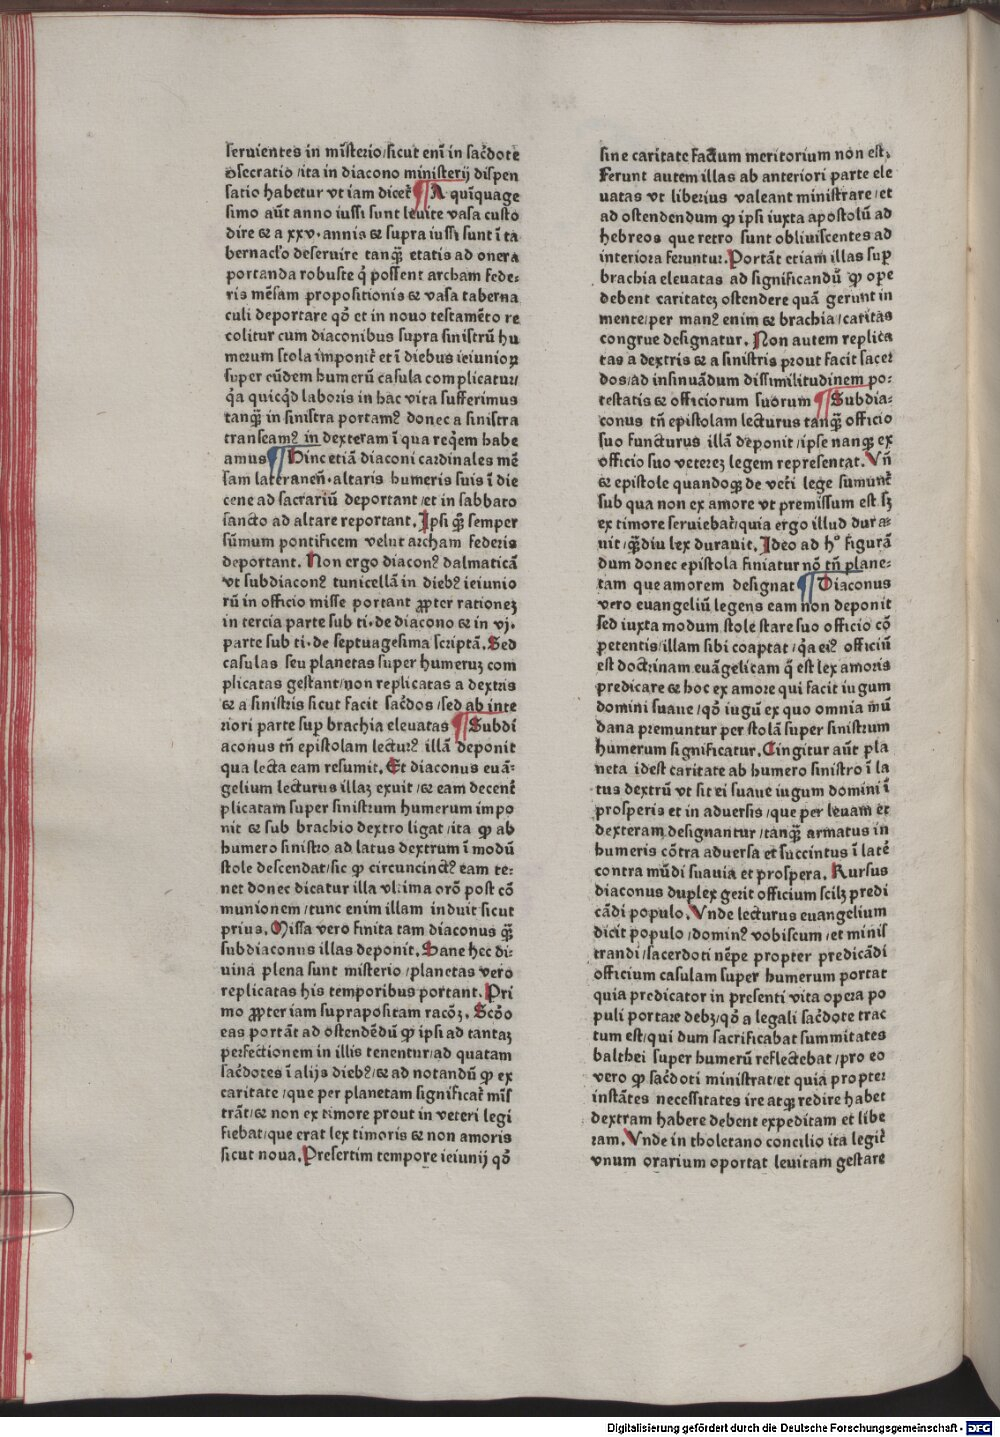 seruientes in misterio/sicut eni in sac̄dote
ɔsecratio/ita in diacono ministerij dispen
satio habetur vt iam dicet᷑ ¶ A quīquage
simo aūt anno iussi sunt leuite vasa custo
dire ⁊ a xxv. annis ⁊ supra iussi sunt ī ta
bernac̄lo deseruire tanq̄ȝ etatis ad onera
portanda robuste q̇ possent archam fede-
ris mēsam propositionis ⁊ vasa taberna
culi deportare qd̄ et in nouo testamēto re
colitur cum diaconibus supra sinistrū hu
merum stola imponit᷑ et ī diebus ieiunioꝝ
super eūdem humerū casula complicatur/
q̇a quicq̇d laboris in hac vita sufferimus
tanq̄ȝ in sinistra portamꝰ donec a sinistra
transeamꝰ in dexteram ī qua req̇em habe
amus ¶ Hinc etiā diaconi cardinales mē
sam lateranen̄. altaris humeris suis ī die
cene ad sacrariū deportant/et in sabbato
sancto ad altare reportant. Ipsi q̄ȝ semper
sūmum pontificem velut archam federis
deportant. Non ergo diaconꝰ dalmaticā
vt subdiaconꝰ tunicellā in diebꝰ ieiunio
rū in officio misse portant ꝓpter rationeȝ
in tercia parte sub ti. de diacono ⁊ in vj.
parte sub ti. de septuagesima scriptā. Sed
casulas seu planetas super humeruȝ com
plicatas gestant/non replicatas a dextris
⁊ a sinistris sicut facit sac̄dos/sed ab inte
riori parte sup̄ brachia eleuatas ¶ Subdi
aconus tn̄ epistolam lecturꝰ illā deponit
qua lecta eam resumit. Et diaconus euā-
gelium lecturus illaȝ exuit/⁊ eam decent᷑
plicatam super sinistrum humerum impo
nit ⁊ sub brachio dextro ligat/ita ꝙ ab
humero sinistro ad latus dextrum ī modū
stole descendat/sic ꝙ circumcinctꝰ eam te-
net donec dicatur illa vltima orō post cō
munionem/tunc enim illam induit sicut
prius. Missa vero finita tam diaconus q̄ȝ
subdiaconus illas deponit. Sane hec di-
uina plena sunt misterio/planetas vero
replicatas his temporibus portant. Pri
mo ꝓpter iam suprapositam racōȝ. Scd̄o
eas portāt ad ostendēdū ꝙ ipsi ad tantaȝ
perfectionem in illis tenentur/ad quatam
sac̄dotes ī alijs diebꝰ/⁊ ad notandū ꝙ ex
caritate/que per planetam significat᷑ mīs
trāt/⁊ non ex timore prout in veteri legi
fiebat/que erat lex timoris ⁊ non amoris
sicut noua. Presertim tempore ieiunij qd̄
sine caritate factum meritorium non est,
Ferunt autem illas ab anteriori parte ele
uatas vt liberius valeant ministrare/et
ad ostendendum ꝙ ipsi iuxta apostolū ad
hebreos que retro sunt obliuiscentes ad
interiora feruntur. Portāt etiam illas sup̄
brachia eleuatas ad significandū ꝙ ope
debent caritateȝ ostendere quā gerunt in
mente/per manꝰ enim ⁊ brachia/caritas
congrue designatur. Non autem replica
tas a dextris ⁊ a sinistris prout facit sacer
dos/ad insinuādum dissimilitudinem po-
testatis ⁊ officiorum suorum ¶ Subdia-
conus tn̄ epistolam lecturus tanq̄ȝ officio
suo functurus illā deponit/ipse nanqȝ ex
officio suo vetereȝ legem representat. Vn̄
⁊ epistole quandoqȝ de vet̄i lege sumunt᷑
sub qua non ex amore vt premissum est sȝ
ex timore seruiebat᷑/quia ergo illud dura-
uit/q̄ȝdiu lex durauit. Ideo ad hº figurā
dum donec epistola finiatur nō tn̄ plane-
tam que amorem designat ¶ Diaconus
vero euangeliū legens eam non deponit
sed iuxta modum stole stare suo officio cō
petentis/illam sibi coaptat/q̇a eiꝰ officiū
est doctrinam euāgelicam q̄ est lex amoris
predicare ⁊ hoc ex amore qui facit iugum
domini suaue/qd̄ iugū ex quo omnia mū
dana premuntur per stolā super sinistrum
humerum significatur. Cingitur aūt pla
neta idest caritate ab humero sinistro ī la
tus dextrū vt sit ei suaue iugum domini ī
prosperis et in aduersis/que per leuam et
dexteram designantur/tanq̄ȝ armatus in
humeris cōtra aduersa et succintus ī late᷑
contra mūdi suauia et prospera. Rursus
diaconus duplex gerit officium scilȝ predi
cādi populo. Vnde lecturus euangelium
dicit populo/dominꝰ vobiscum/et minis
trandi/sacerdoti nēpe propter predicādi
officium casulam super humerum portat
quia predicator in presenti vita opera po
puli portare debȝ/qd̄ a legali sac̄dote trac
tum est/qui dum sacrificabat summitates
balthei super humerū reflectebat/pro eo
vero ꝙ sac̄doti ministrat/et quia propter
instātes necessitates ire atqȝ redire habet
dextram habere debent expeditam et libe
ram. Vnde in tholetano concilio ita legit᷑
vnum orarium oportat leuitam gestare
Digitalisierung gefördert durch die Deutsche Forschungsgemeinschaft - DFG